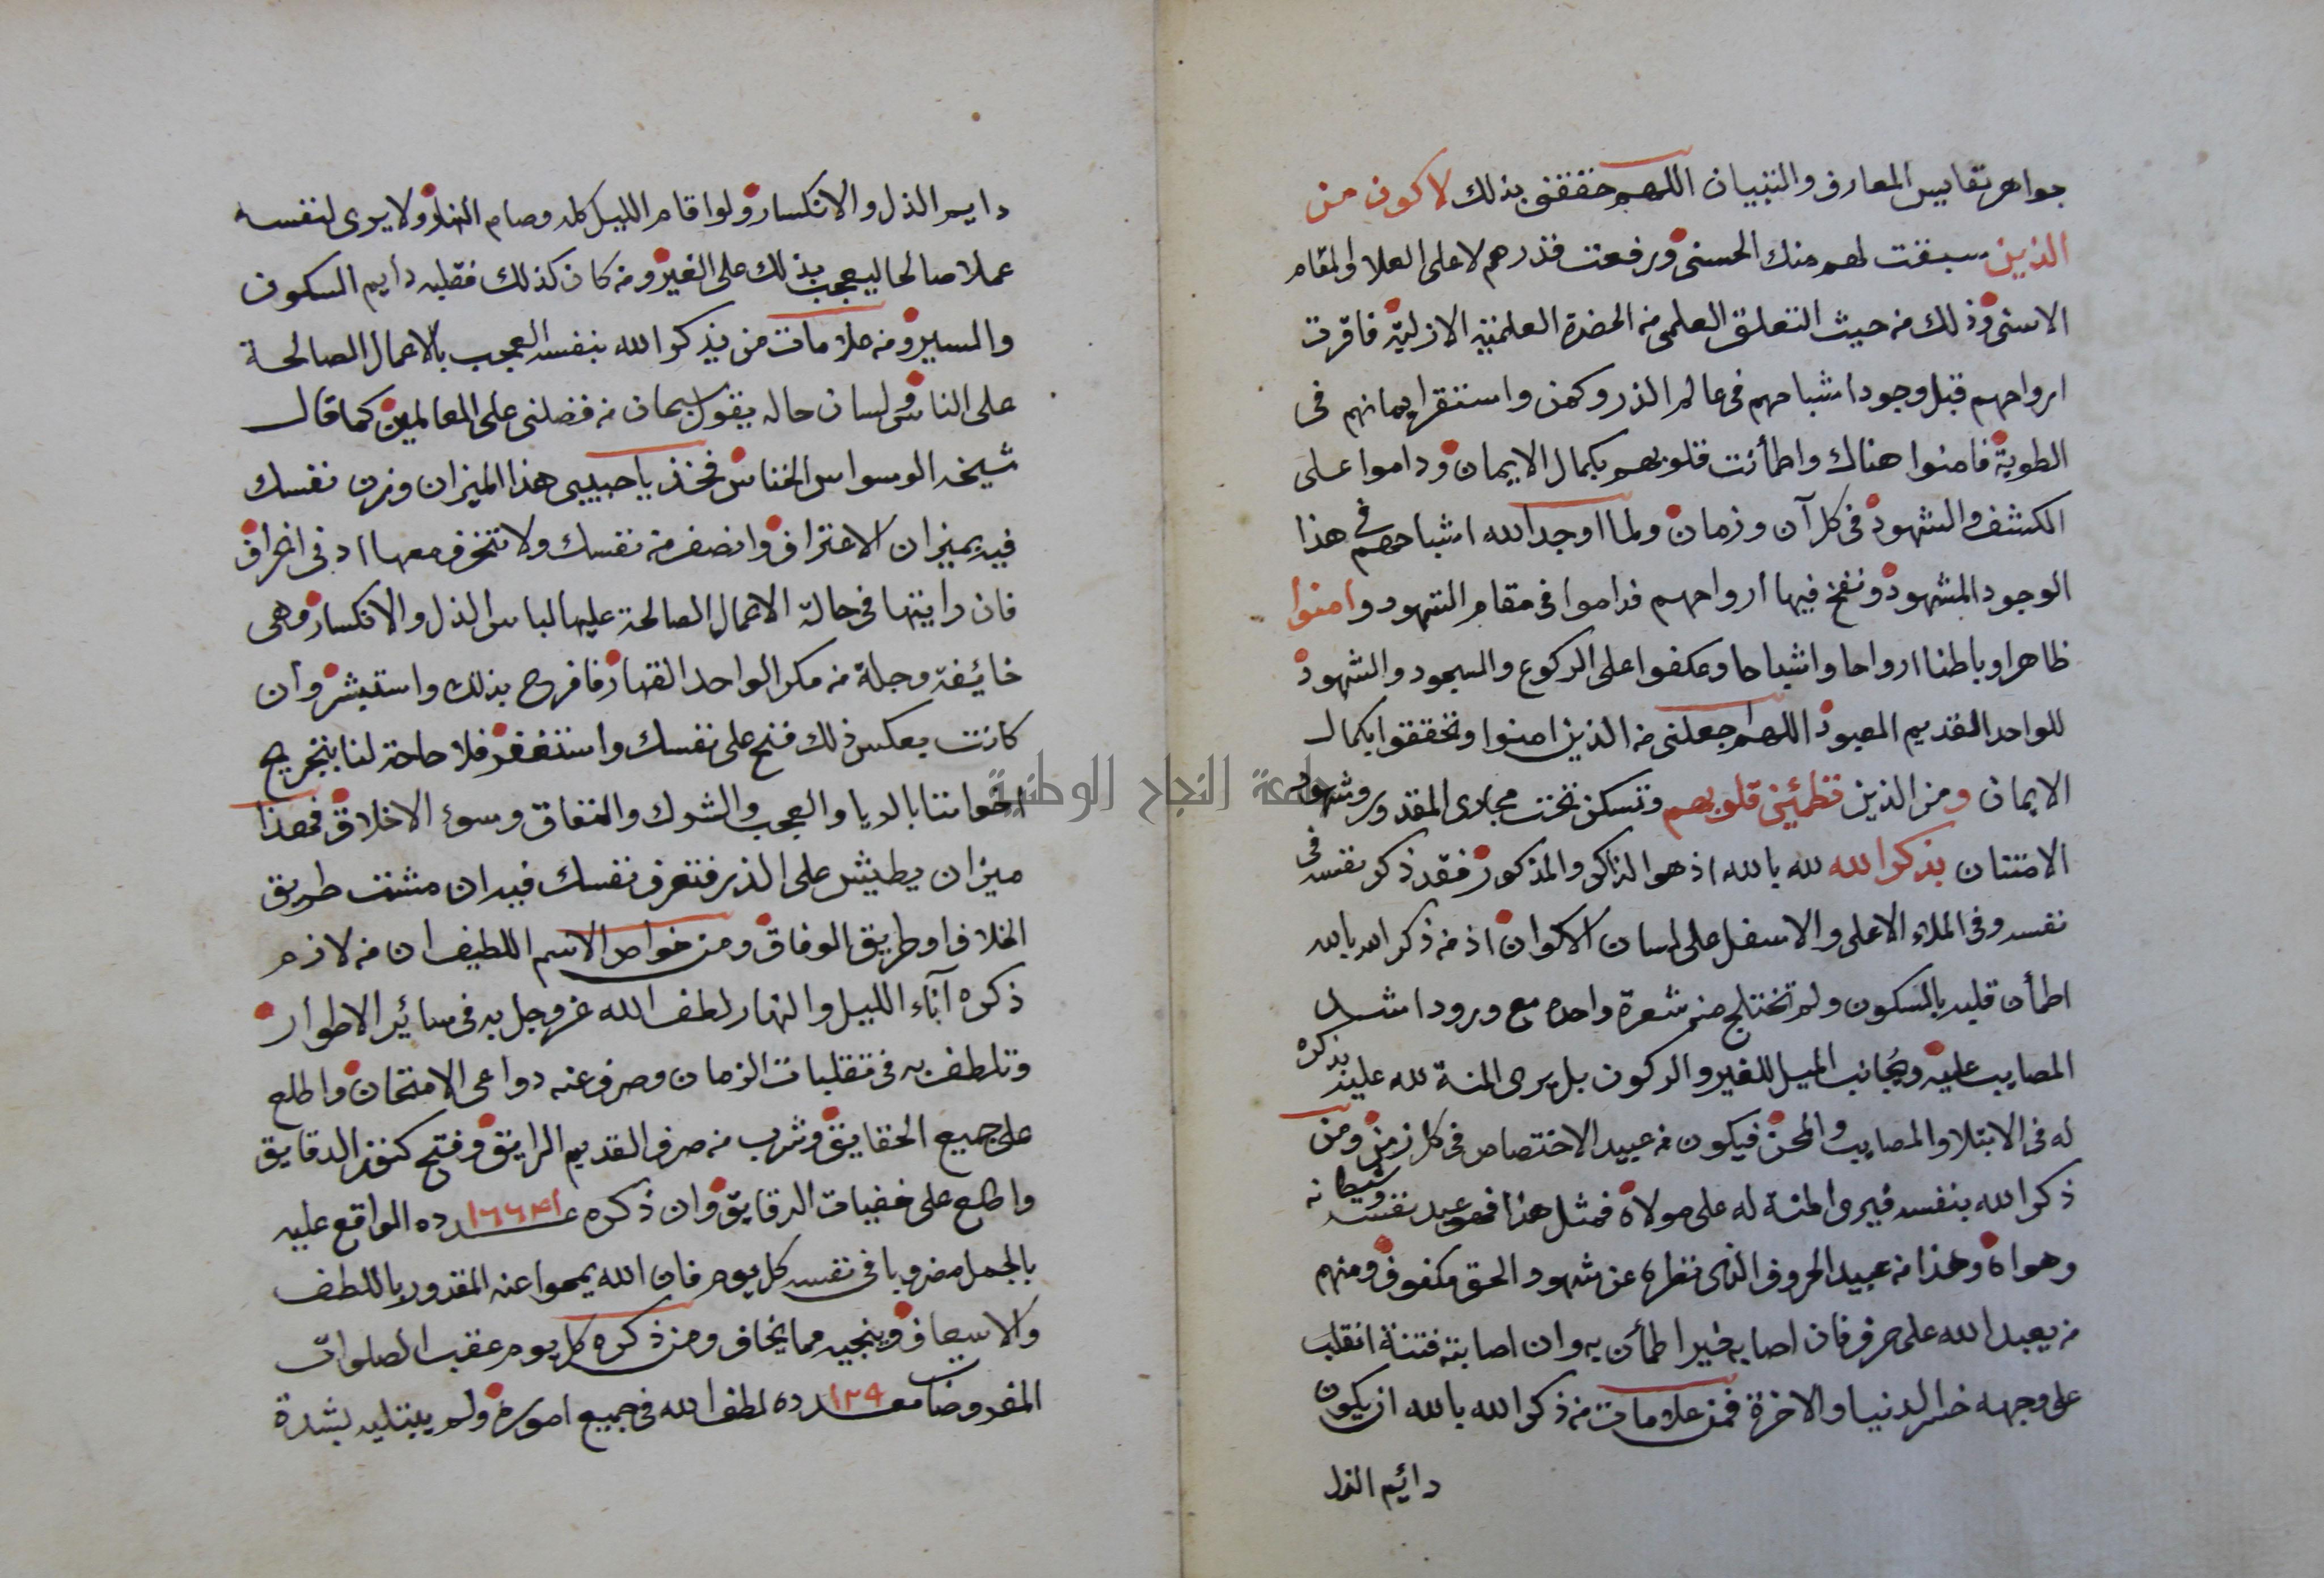 جواهر نفايس المعارف والتبيان اللهم حققني بذلك لاكون من
الذين سبقت لهم منك الحسنى ورفعت قدرهم لاعلى العلا والمقام
الاسنى وذلك من حيث التعلق العلمي من الحضرة العلمية الازلية فاقرت
ارواحهم قبل وجود اشباحهم في عالم الذر وكمن واستقر ايمانهم في
الطوية فامنوا هناك واطمأنت قلوبهم بكمال الايمان وداموا على
الكشف والشهود في كل آن وزمان ولما اوجد الله اشباحهم في هذا
الوجود المشهود ونفخ فيها ارواحهم فداموا في مقام الشهود وامنوا
ظاهرا وباطنا ارواحا واشباحا وعكفوا على الركوع والسجود والشهود
للواحد القديم المعبود اللهم اجعلني من الذين امنوا وتحققوا بكمال
الايمان ومن الذين تطمئن قلوبهم وتسكن تحت مجارى المقدور وشهود
الامتنان بذكر الله لله بالله اذ هو الذاكر والمذكور فقد ذكر نفسه في
نفسه وفي الملاء الاعلى والاسفل على لسان الاكوان اذ من ذكر الله بالله
اطمأن قلبه بالسكون ولم تختلج منه شعرة واحدة مع ورود اشد
المصايب عليه ويجانب الميل للغير والركون بل يرى المنة لله عليه بذكره
له في الابتلا والمصايب والمحن فيكون من عبيد الاختصاص في كل زمن ومن
ذكر الله بنفسه فيرى المنة له على مولاه فمثل هذا فهو عبد نفسه وشيطانه
وهواه وهذا من عبيد الحروف الذى نظره عن شهود الحق مكفوف ومنهم
من يعبد الله على حرف فان اصابه خير اطمأن به وان اصابته فتنة انقلب
على وجهه خسر الدنيا والاخرة فمن علامات من ذكر الله بالله ان يكون
دائم الذل
دايم الذل والانكسار ولو اقام الليل كله وصام النهار ولا يرى لنفسه
عملا صالحا ليعجب بذلك على الغير ومن كان كذلك فقلبه دايم السكون
والسير ومن علامات من يذكر الله بنفسه العجب بالاعمال الصالحة
على الناس ولسان حاله يقول سبحان من فضلني على العالمين كما قال
شيخه الوسواس الخناس فخذ يا حبيبي هذا الميزان وزن نفسك
فيه بميزان الاعتراف وانصف من نفسك ولا تنحرف معها ادنى انحراف
فان رايتها في حالة الاعمال الصالحة عليها لباس الذل والانكسار وهى
خائفة وجلة من مكر الواحد القهار فافرح بذلك واستبشر وان
كانت بعكس ذلك فنح على نفسك واستغفر فلا حاجة لنا بتجريح
اخواننا بالريا والعجب والشرك والنفاق وسوء الاخلاق فهذا
ميزان يطيش على الذر فتعرف نفسك فيه ان مشت طريق
الخلاف او طريق الوفاق ومن خواص الاسم اللطيف ان من لازم
ذكره آناء الليل والنهار لطف الله عز وجل به في سائر الاطوار
وتلطف به في تقلبات الزمان وصرف عنه دواعى الامتحان واطلع
على جميع الحقايق وشرب من صرف القديم الرايق وفتح كنوز الدقايق
واطلع على خفيات الرقايق وان ذكره عدده ١٦٦٤١ الواقع عليه
بالجمل مضروبا في نفسه كل يوم فان الله يمحوا عنه المقدور باللطف
والاسعاف وينجيه مما يخاف ومن ذكره كل يوم عقب الصلوات
المفروضات عدده ١٢٩ لطف الله في جميع اموره ولم يبتليه بشدة
جامعة النجاح الوطنية